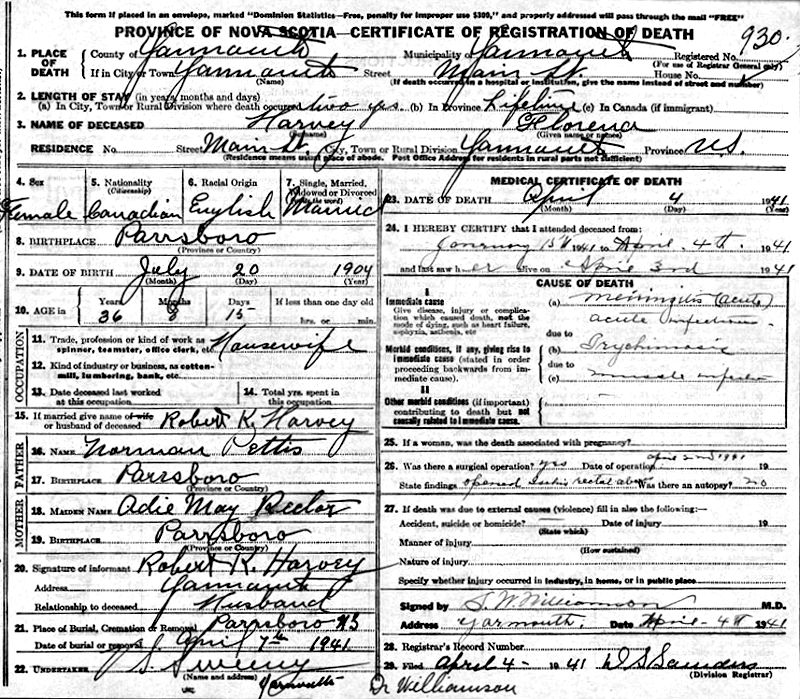 This form if placed in an envelope, marked "Dominion Statistics—Free, penalty for improper use $300," and properly addressed will pass through the mail "FREE"
PROVINCE OF NOVA SCOTIA—CERTIFICATE OF REGISTRATION OF DEATH
930.
1. PLACE OF DEATH County of Yarmouth Municipality of Yarmouth Registered No. (For use of Registrar General only)
If in City or Town Yarmouth (Name) Street Main St. House No.
(If death occurred in a hospital or institution, give the name instead of street and number)
2. LENGTH OF STAY (in years, months and days)
(a) In City, Town or Rural Division where death occurred two yrs. (b) In Province Lifetime (c) In Canada (if immigrant)
3. NAME OF DECEASED Harvey (Surname) Florence (Given name or names)
RESIDENCE No. Street Main St. City, Town or Rural Division Yarmouth Province N.S.
(Residence means usual place of abode. Post Office Address for residents in rural parts not sufficient)
4. Sex Female
5. Nationality (Citizenship) Canadian
6. Racial Origin English
7. Single, Married, Widowed or Divorced (write the word) Married
8. BIRTHPLACE Parrsboro (Province or Country)
9. DATE OF BIRTH July (Month) 20 (Day) 1904 (Year)
10. AGE in Years 36 Months 8 Days 15 If less than one day old hrs. or min.
OCCUPATION
11. Trade, profession or kind of work as spinner, teamster, office clerk, etc. Housewife
12. Kind of industry or business, as cotton-mill, lumbering, bank, etc.
13. Date deceased last worked at this occupation
14. Total yrs. spent in this occupation
15. If married give name of wife or husband of deceased Robert K. Harvey
FATHER
16. NAME Norman Pettis
17. BIRTHPLACE Parrsboro (Province or Country)
MOTHER
18. MAIDEN NAME Adie May Rector
19. BIRTHPLACE Parrsboro (Province or Country)
20. Signature of informant Robert K. Harvey
Address Yarmouth
Relationship to deceased Husband
21. Place of Burial, Cremation or Removal Parrsboro NS
Date of burial or removal April 7th 1941
22. UNDERTAKER Sweeny
(Name and address) Yarmouth
MEDICAL CERTIFICATE OF DEATH
23. DATE OF DEATH April (Month) 4 (Day) 1941 (Year)
24. I HEREBY CERTIFY that I attended deceased from:
January 15th 1941 to April 4th 1941
and last saw her alive on April 3rd 1941
CAUSE OF DEATH
I
Immediate cause
Give disease, injury or complication which caused death, not the mode of dying, such as heart failure, asphyxia, asthenia, etc
(a) Meningitis (acute)
acute infectious
due to
Morbid conditions, if any, giving rise to immediate cause (stated in order proceeding backwards from immediate cause).
(b) Trychinosis
due to
(c) muscle
II
Other morbid conditions (if important) contributing to death but not causally related to immediate cause.
25. If a woman, was the death associated with pregnancy?
26. Was there a surgical operation? yes Date of operation april 2nd 1941 19
State findings opened rectal Was there an autopsy? no
27. If death was due to external causes (violence) fill in also the following:—
Accident, suicide or homicide? (State which) Date of injury 19
Manner of injury (How sustained)
Nature of injury
Specify whether injury occurred in industry, in home, or in public place
Signed by S. W. Williamson M.D.
Address Yarmouth. Date April 4th 1941
28. Registrar's Record Number
29. Filed April 4 - 1941 D S Saunders
(Division Registrar)
Dr Williamson